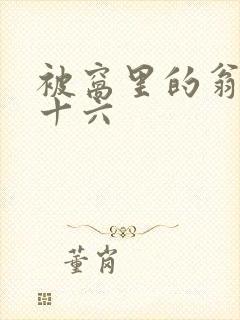 被窝里的翁
十六
董肖